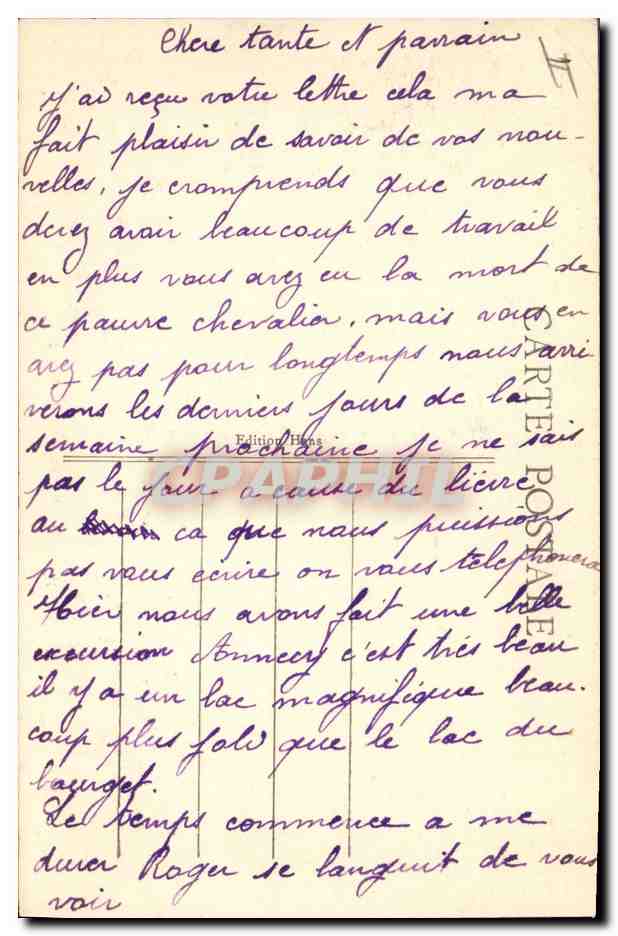 Chere tante et parrain
II
J'ai reçu votre lettre cela ma
fait plaisir de savoir de vos nou-
velles, je cromprends que vous
devez avoir beaucoup de travail
en plus vous avez eu la mort de
ce pauvre chevalier, mais vous en
avez pas pour longtemps nous arri
verons les derniers jours de la
semaine prochaine je ne sais
pas le jour a cause du lièvre
au ca que nous puissions
pas vous ecrire on vous telephonera
Hier nous avons fait une belle
excursion Annecy c'est trés beau
il y a un lac magnifique beau-
coup plus joli que le lac du
bourget.
Le temps commence a me
durer Roger se languit de vous
voir
CARTE POSTALE
Edition Hans
CPAPHIL